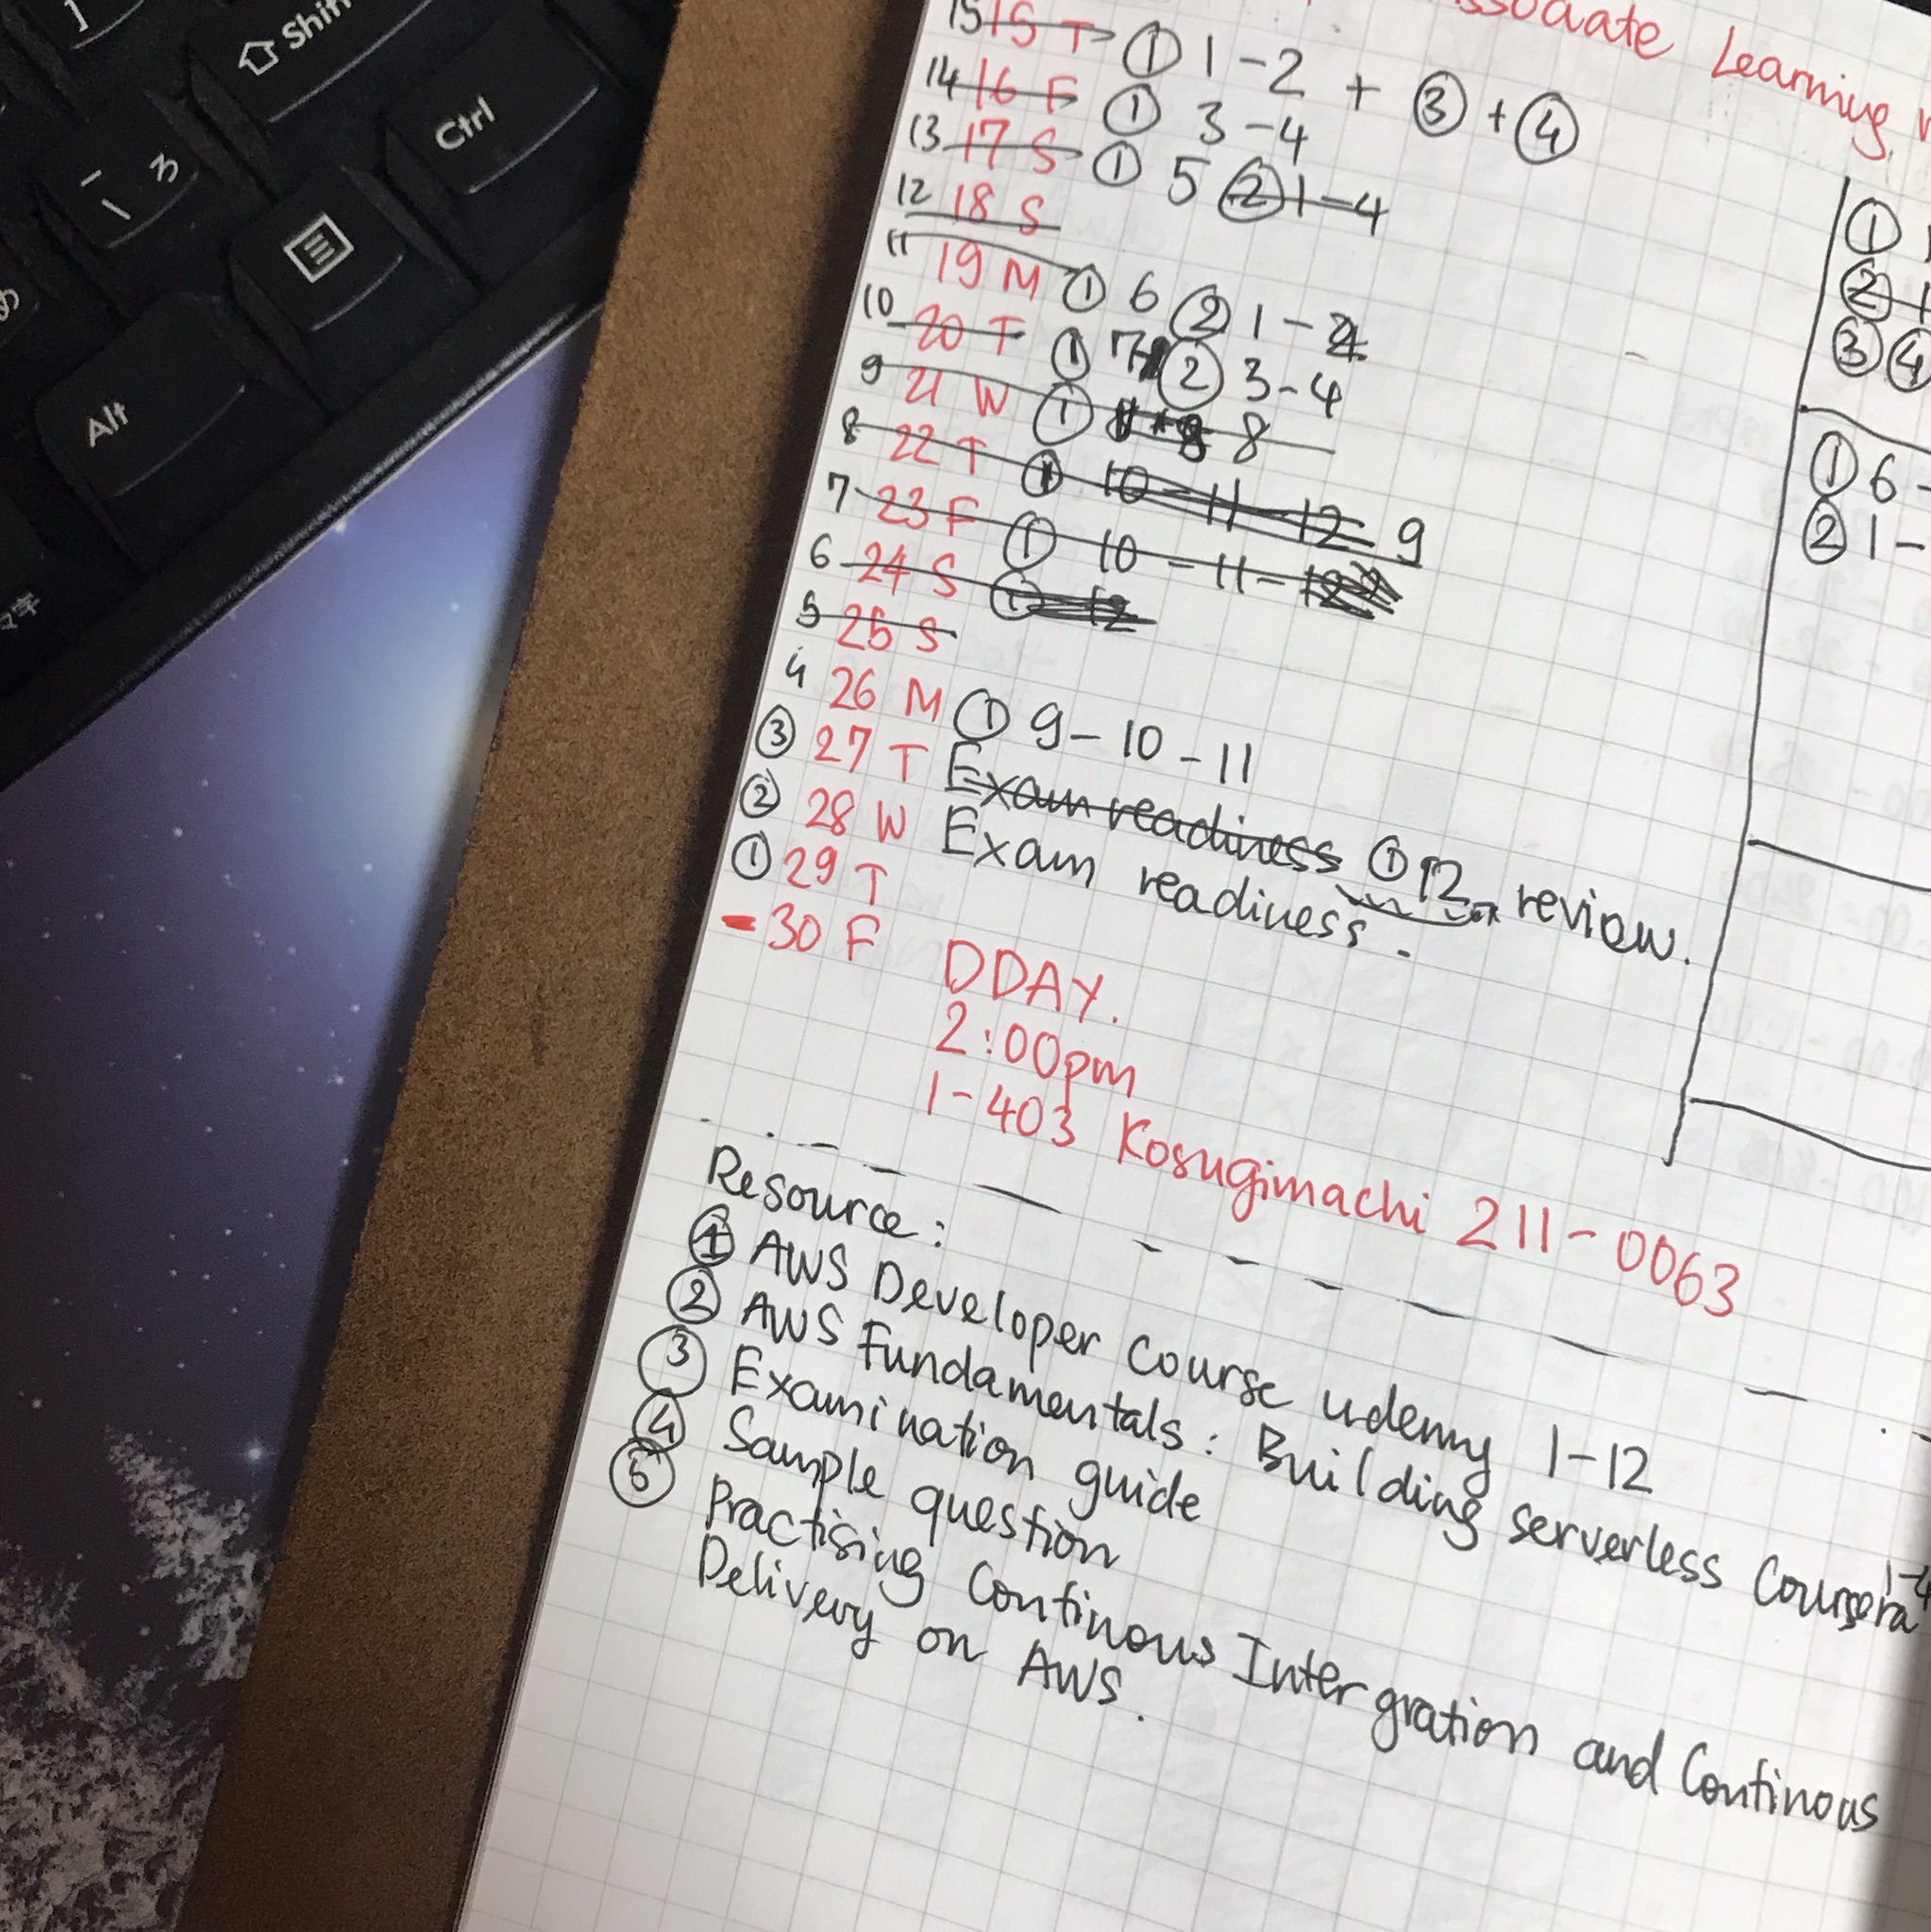 ]
Shift
ろ
Ctrl
Alt
ssociate Learning
15 15 T ① 1-2 + ③ + ④
14 16 F ① 3-4
13 17 S ① 5 ② 1-4
12 18 S
11 19 M ① 6 ② 1-2
10 20 T ① 7 ② 3-4
9 21 W ① 8
8 22 T ① 10-11-12 9
7 23 F ① 10-11-12
6 24 S ① 12
5 25 S
4 26 M ① 9-10-11
③ 27 T Exam readiness ① 12 review.
② 28 W Exam readiness.
① 29 T
- 30 F DDAY.
2:00pm
1-403 Kosugimachi 211-0063
①
②
③ ④
① 6-
② 1-
Resource:
① AWS Developer Course udemy 1-12
② AWS Fundamentals: Building serverless Coursera 1-4
③ Examination guide
④ Sample question
⑤ Practising Continous Intergration and Continous
Delivery on AWS.